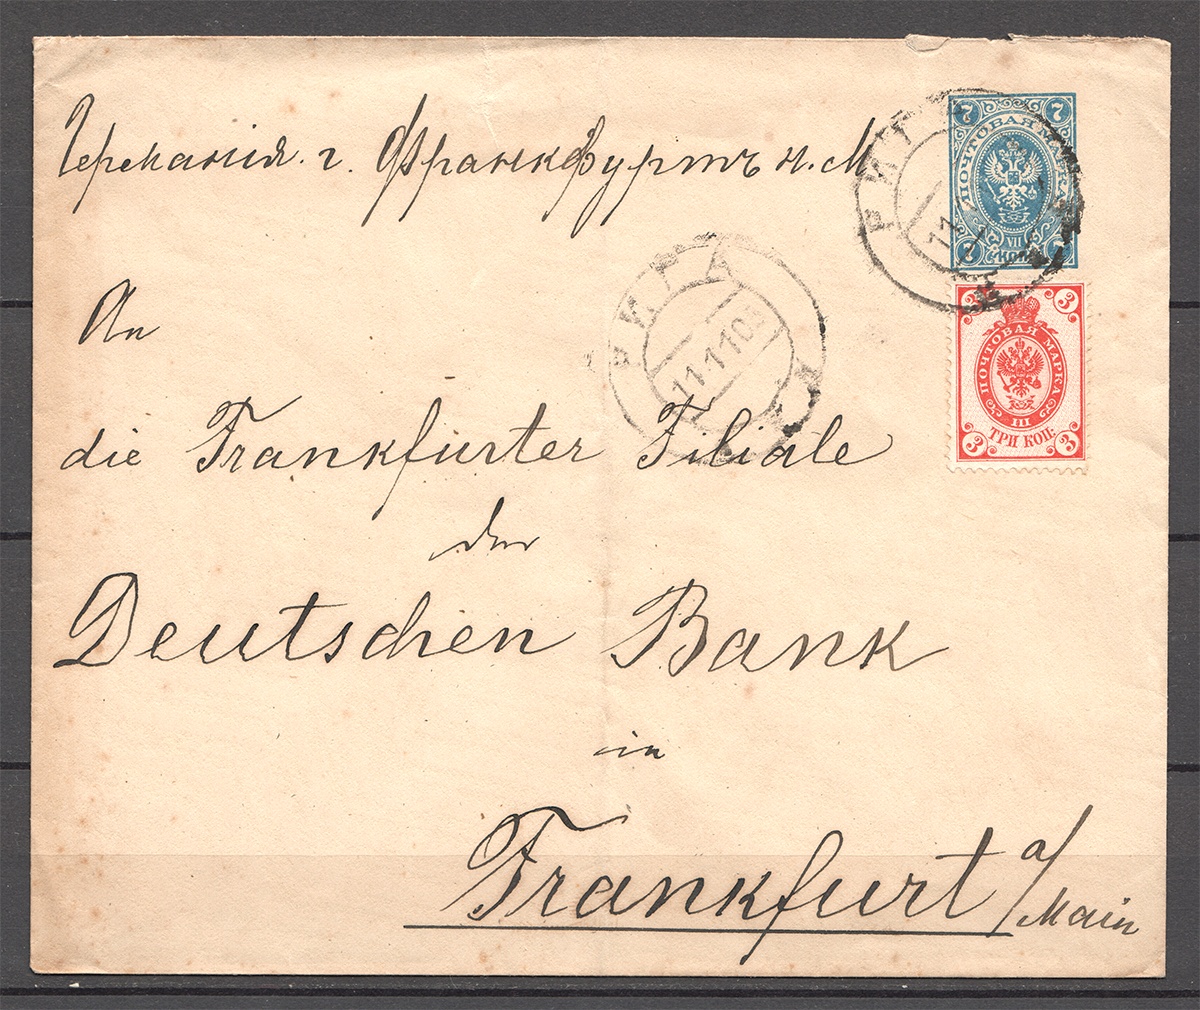 Германия. г. Франкфуртъ н. М
7 7
ПОЧТОВАЯ МАРКА
VII
7 КОП. 7
РИГА
3 3
ПОЧТОВАЯ МАРКА
III
ТРИ КОП.
3 3
РИГА
11·1·10
An
die Frankfurter Filiale
der
Deutschen Bank
in
Frankfurt a/Main